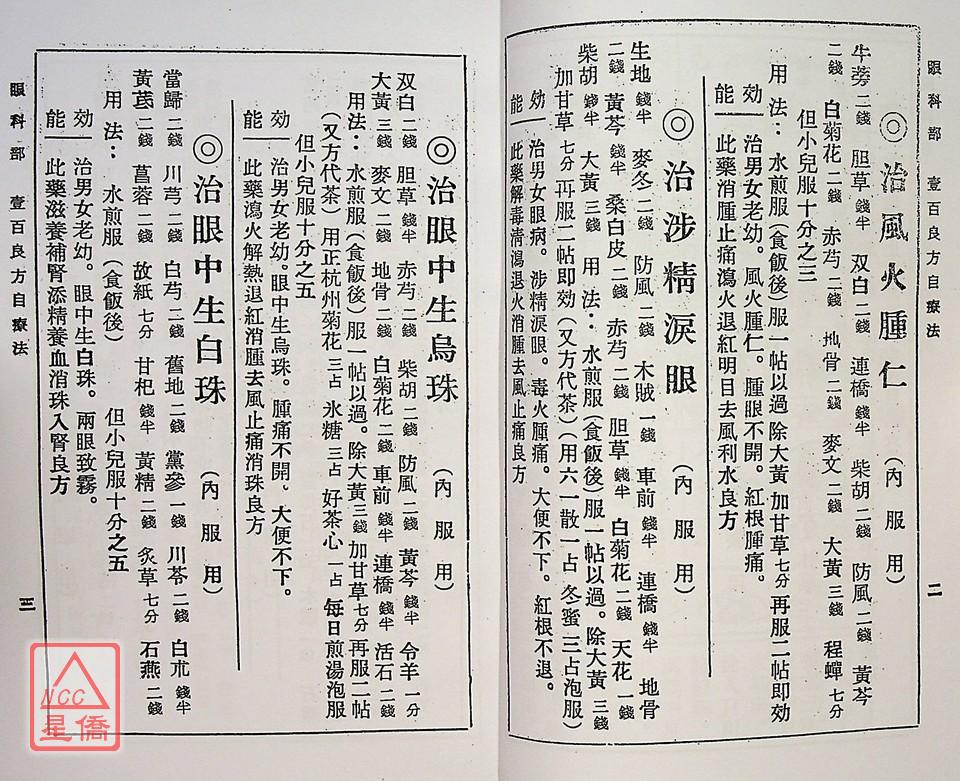 眼科部　壹百良方自療法　二
◎治風火腫仁（內服用）
牛蒡二錢　胆草錢半　双白二錢　連橋錢半　柴胡二錢　防風二錢　黃芩
二錢　白菊花二錢　赤芍二錢　地骨二錢　麥文二錢　大黃三錢　程蟬七分
用法：水煎服（食飯後）服一帖以過除大黃加甘草七分再服二帖即効
但小兒服十分之三
効能　治男女老幼。風火腫仁。腫眼不開。紅根腫痛。
此藥消腫止痛瀉火退紅明目去風利水良方
◎治涉精淚眼（內服用）
生地錢半　麥冬二錢　防風二錢　木賊一錢　車前錢半　連橋錢半　地骨
二錢　黃芩錢半　桑白皮二錢　赤芍二錢　胆草錢半　白菊花二錢　天花一錢
柴胡錢半　大黃三錢　用法：水煎服（食飯後）服一帖以過。除大黃三錢
加甘草七分再服二帖即効（又方代茶）（用六一散一占冬蜜三占泡服）
効能　治男女眼病。涉精淚眼。毒火腫痛。大便不下。紅根不退。
此藥解毒清瀉退火消腫去風止痛良方
◎治眼中生烏珠（內服用）
双白二錢　胆草錢半　赤芍二錢　柴胡二錢　防風二錢　黃芩錢半　令羊一分
大黃三錢　麥文二錢　地骨二錢　白菊花二錢　車前錢半　連橋錢半　活石二錢
用法：水煎服（食飯後）服一帖以過。除大黃三錢加甘草七分再服二帖
（又方代茶）用正杭州菊花三占　氷糖三占　好茶心一占　每日煎湯泡服
但小兒服十分之五
効能　治男女老幼。眼中生烏珠。腫痛不開、大便不下。
此藥瀉火解熱退紅消腫去風止痛消珠良方
◎治眼中生白珠（內服用）
當歸二錢　川芎二錢　白芍二錢　舊地二錢　黨參一錢　川苓二錢　白朮錢半
黃芪二錢　菖蓉二錢　故紙七分　甘杞錢半　黃精二錢　炙草七分　石燕二錢
用法：水煎服（食飯後）　但小兒服十分之五
効能　治男女老幼。眼中生白珠。兩眼致霧。
此藥滋養補腎添精養血消珠入腎良方
眼科部　壹百良方自療法　三
NCC
星僑